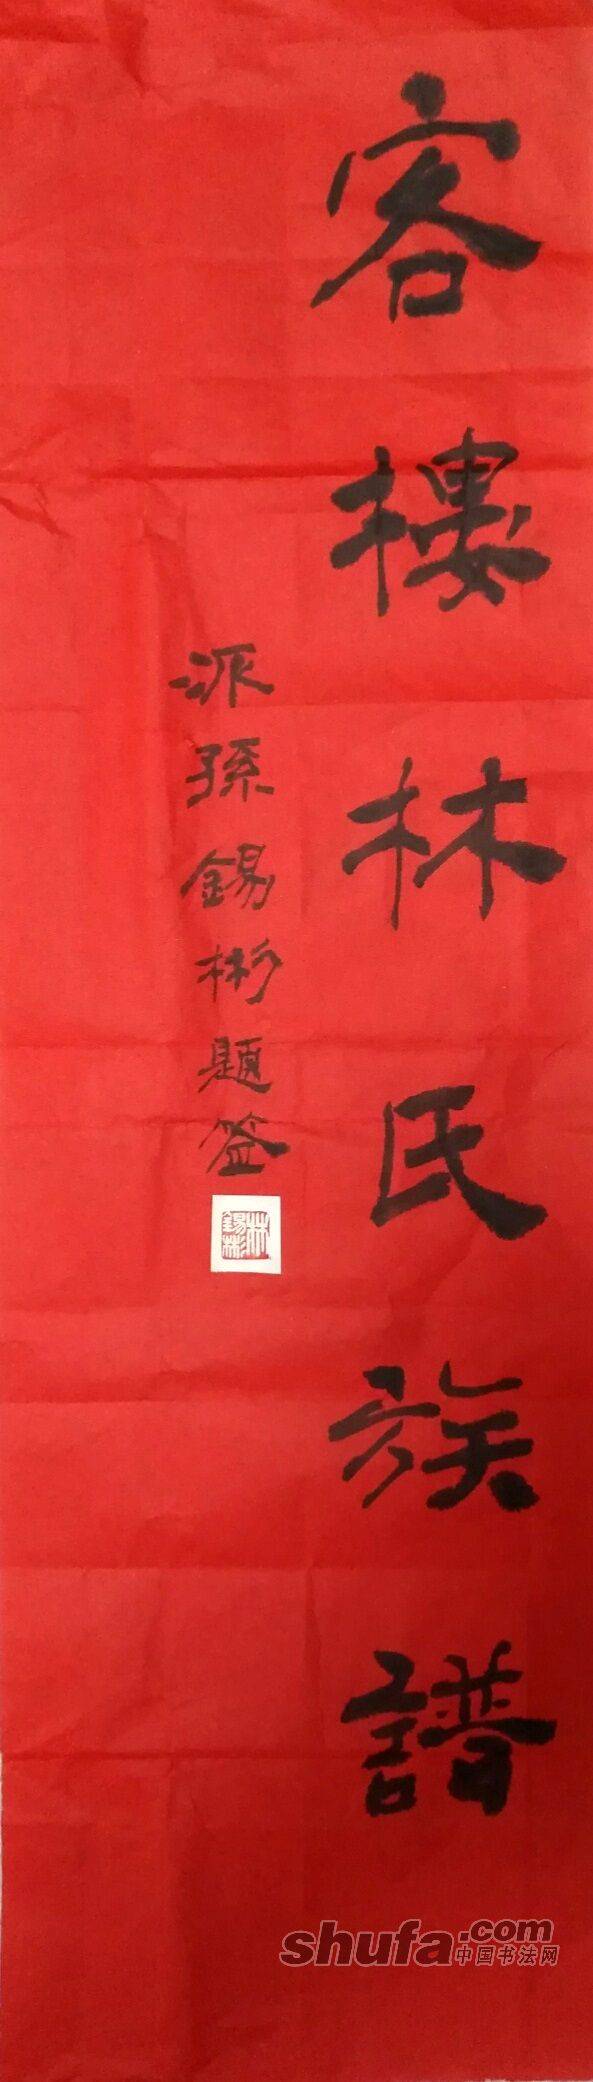 客樓林氏族譜
派孫錫彬題签
林錫彬
shufa.com
中国书法网